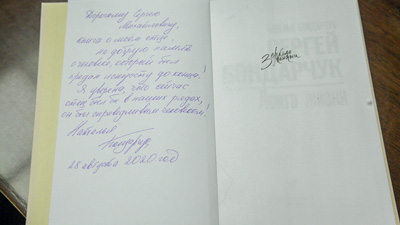 Дорогому Сергею
Михайловичу,
книга о моем отце
на добрую память
о человеке, который был
предан искусству до конца!
Я уверена, что сейчас
отец был бы в наших рядах,
он был справедливым человеком!
Наталия
28 августа 2020 год